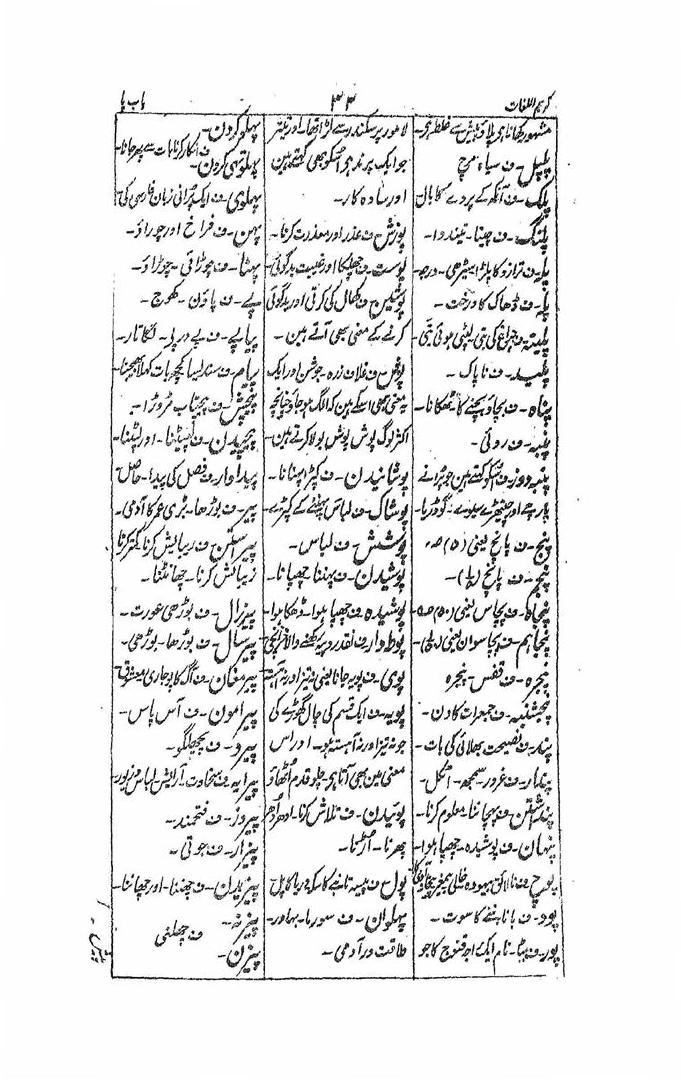 کریم اللغات
۳۳
باب پا
مشہور کھانا ہی پلاؤ بش سے غلط ہی۔
پلپل۔ ف سیاہ مرچ
پلک۔ ف آنکھ کے پردے کا بال
پلنگ۔ ف چیتا۔ تیندوا۔
پلہ۔ ف ترازو کا پلڑا سیڑھی۔ درجہ
پلہ۔ ف ڈھاک کا درخت۔
پلیتہ۔ ف چراغ کی بتی لپٹی ہوئی بتی
پلید۔ ف ناپاک۔
پناہ۔ ف بچاؤ بچنے کا ٹھکانا۔
پنبہ۔ ف روئی۔
پنبہ دوز۔ ف اسکو کہتے ہین جو پرانے
پارچے اور چیتھڑے سیوے۔ گوڈریا۔
پنج۔ ف پانچ یعنی (۵) صہ
پنجم۔ ف پانچ
پنجاہ۔ ف پچاس یعنی (۵۰)
پنجاہم۔ ف پچاسوان یعنی
پنجرہ۔ ف قفس۔ پنجرہ
پنجشنبہ۔ ف جمعرات کا دن۔
پند۔ ف نصیحت بھلائی کی بات۔
پندار۔ ف غرور۔ سمجھ۔ اٹکل۔
پنداشتن۔ ف پہچاننا۔ معلوم کرنا۔
پنہان۔ ف پوشیدہ۔ چھپا ہوا۔
پوچ۔ ف نالائق بیہودہ خالی
پود۔ ف بانا بننے کا سوت۔
پور۔ ف بیٹا۔ نام ایک راجہ قنوج کا جو
لاہور پر سکندر سے لڑا تھا۔ اور تیتر
جو ایک پرند ہی اسکو بھی کہتے ہین
اور سادہ کار۔
پوزش۔ ف عذر اور معذرت کرنا۔
پوست۔ ف چھلکا اور غیبت بدگوئی۔
پوستین۔ ف کھال کی کرتی اور بدگوئی
کرنے کے معنی بھی آتے ہین۔
پوش۔ ف غلاف زرہ۔ جوشن اور ایک
یہ معنی بھی اسکے ہین کہ الگ ہو جاؤ چنانچہ
اکثر لوگ پوش پوش بولا کرتے ہین۔
پوشانیدن۔ ف کپڑا پہنانا۔
پوشاک۔ ف لباس پہننے کے کپڑے۔
پوشش۔ ف لباس۔
پوشیدن۔ ف پہننا چھپانا۔
پوشیدہ۔ ف چھپا ہوا۔ ڈھکا ہوا۔
پوطہ دار۔ ف نقد روپیہ رکھنے والا خزانچی
پوی۔ ف پویہ جانا یعنی نہ تیز اور نہ آہستہ
پویہ۔ ف ایک قسم کی چال گھوڑے کی
جو نہ تیز اور نہ آہستہ ہو۔ اور اس
معنی مین بھی آتا ہی۔ چلو قدم اٹھاؤ
پوئیدن۔ ف تلاش کرنا۔ ادھر ادھر
پھرنا۔ اڑنا۔
پول۔ ف پیسہ تانبے کا سکہ۔ دریا کا پل
پہلوان۔ ف سورما۔ بہادر۔
طاقت ور آدمی۔
پہلو کردن۔
پہلو تہی کردن۔ ف انکار کرنا بات سے پھر جانا۔
پہلوی۔ ف ایک پرانی زبان فارسی کی
پہن۔ ف فراخ اور چوراؤ۔
پہنا۔ ف چوڑائی۔ چوڑاؤ۔
پے۔ ف پاؤن۔ کھوج۔
پیاپے۔ ف پے در پی۔ لگاتار۔
پیام۔ ف سندیسا کچھ بات کہلا بھیجنا۔
پیچش۔ ف پیچتاب مروڑا۔
پیچیدن۔ ف لپیٹنا۔ اور لپٹنا۔
پیداوار۔ ف فصل کی پیدا۔ حاصل
پیر۔ ف بوڑھا۔ بڑی عمر کا آدمی۔
پیراستن۔ ف زیبائش کرنا۔ کترنا
زیبائش کرنا۔ چھانٹنا۔
پیرزال۔ ف بوڑھی عورت۔
پیرسال۔ ف بوڑھا۔ بوڑھی۔
پیرمغان۔ ف آگ کا پوجاری
پیرامون۔ ف آس پاس۔
پیرو۔ ف پچھلگو۔
پیرایہ۔ ف سخاوت آرایش لباس زیور۔
پیروز۔ ف فتحمند۔
پیزار۔ ف جوتی۔
پیزیدن۔ ف چھننا۔ اور چھاننا۔
پیزنہ۔
پیزن۔ ف چھلنی